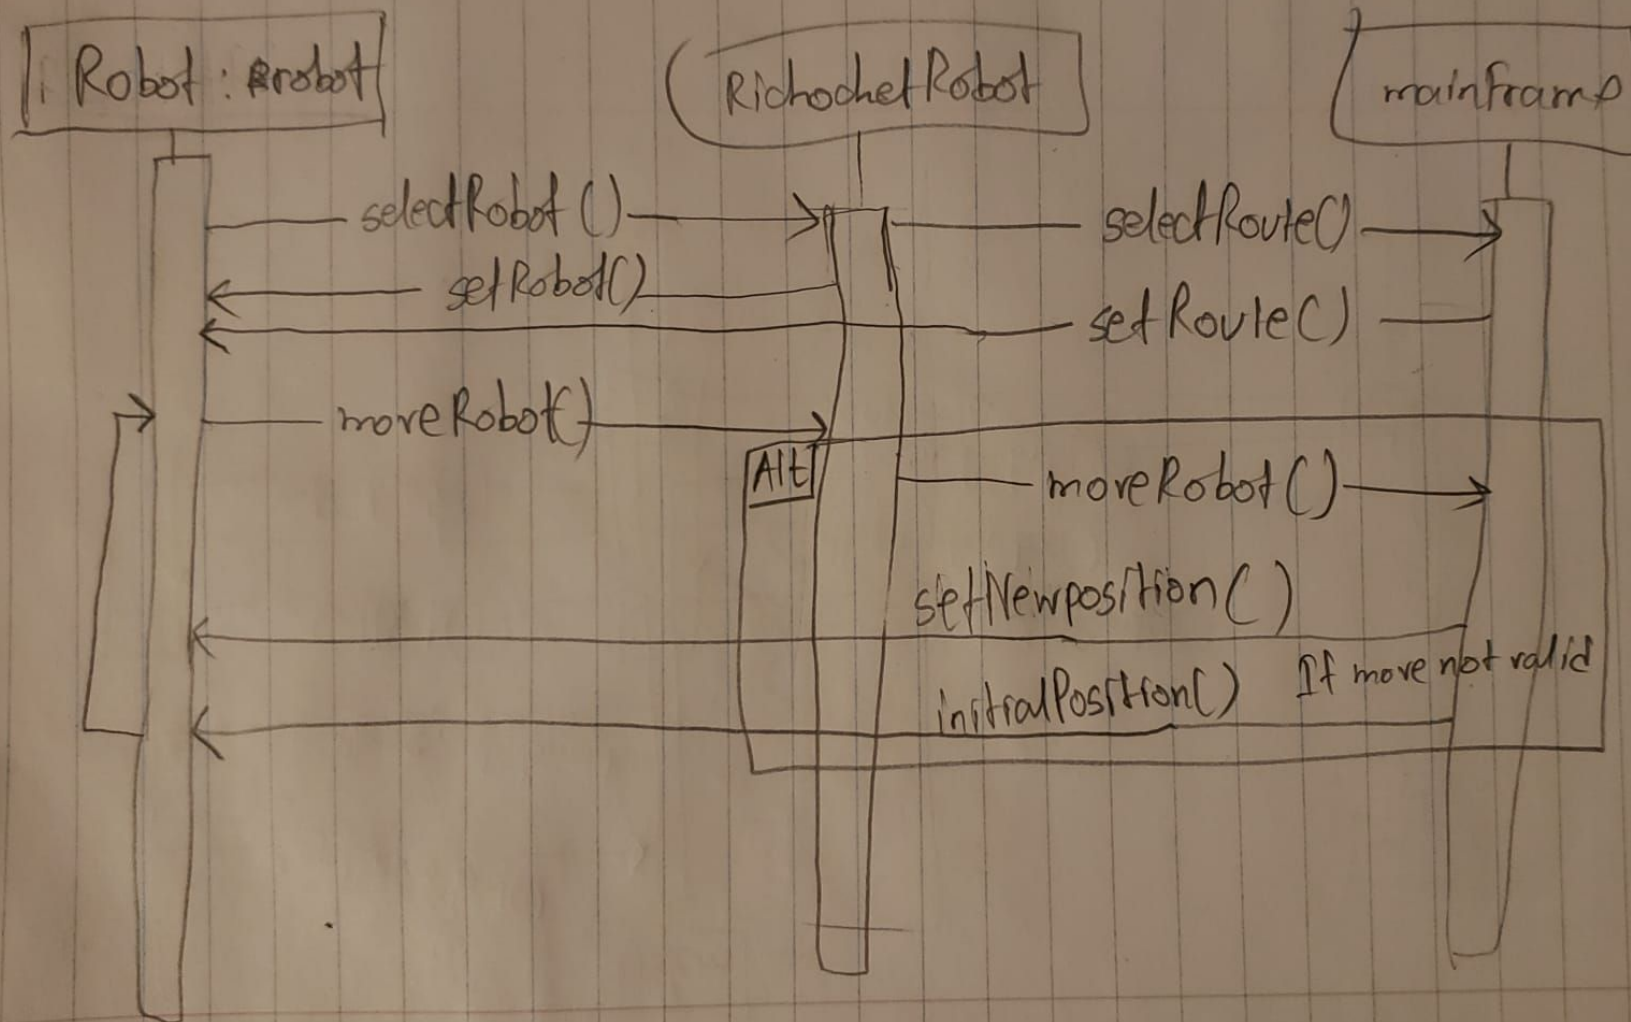 Robot : robot
RichochetRobot
mainframe
selectRobot ()
selectRoute()
setRobot()
setRoute()
moveRobot()
Alt
moveRobot()
setNewposition()
If move not valid
initialPosition()